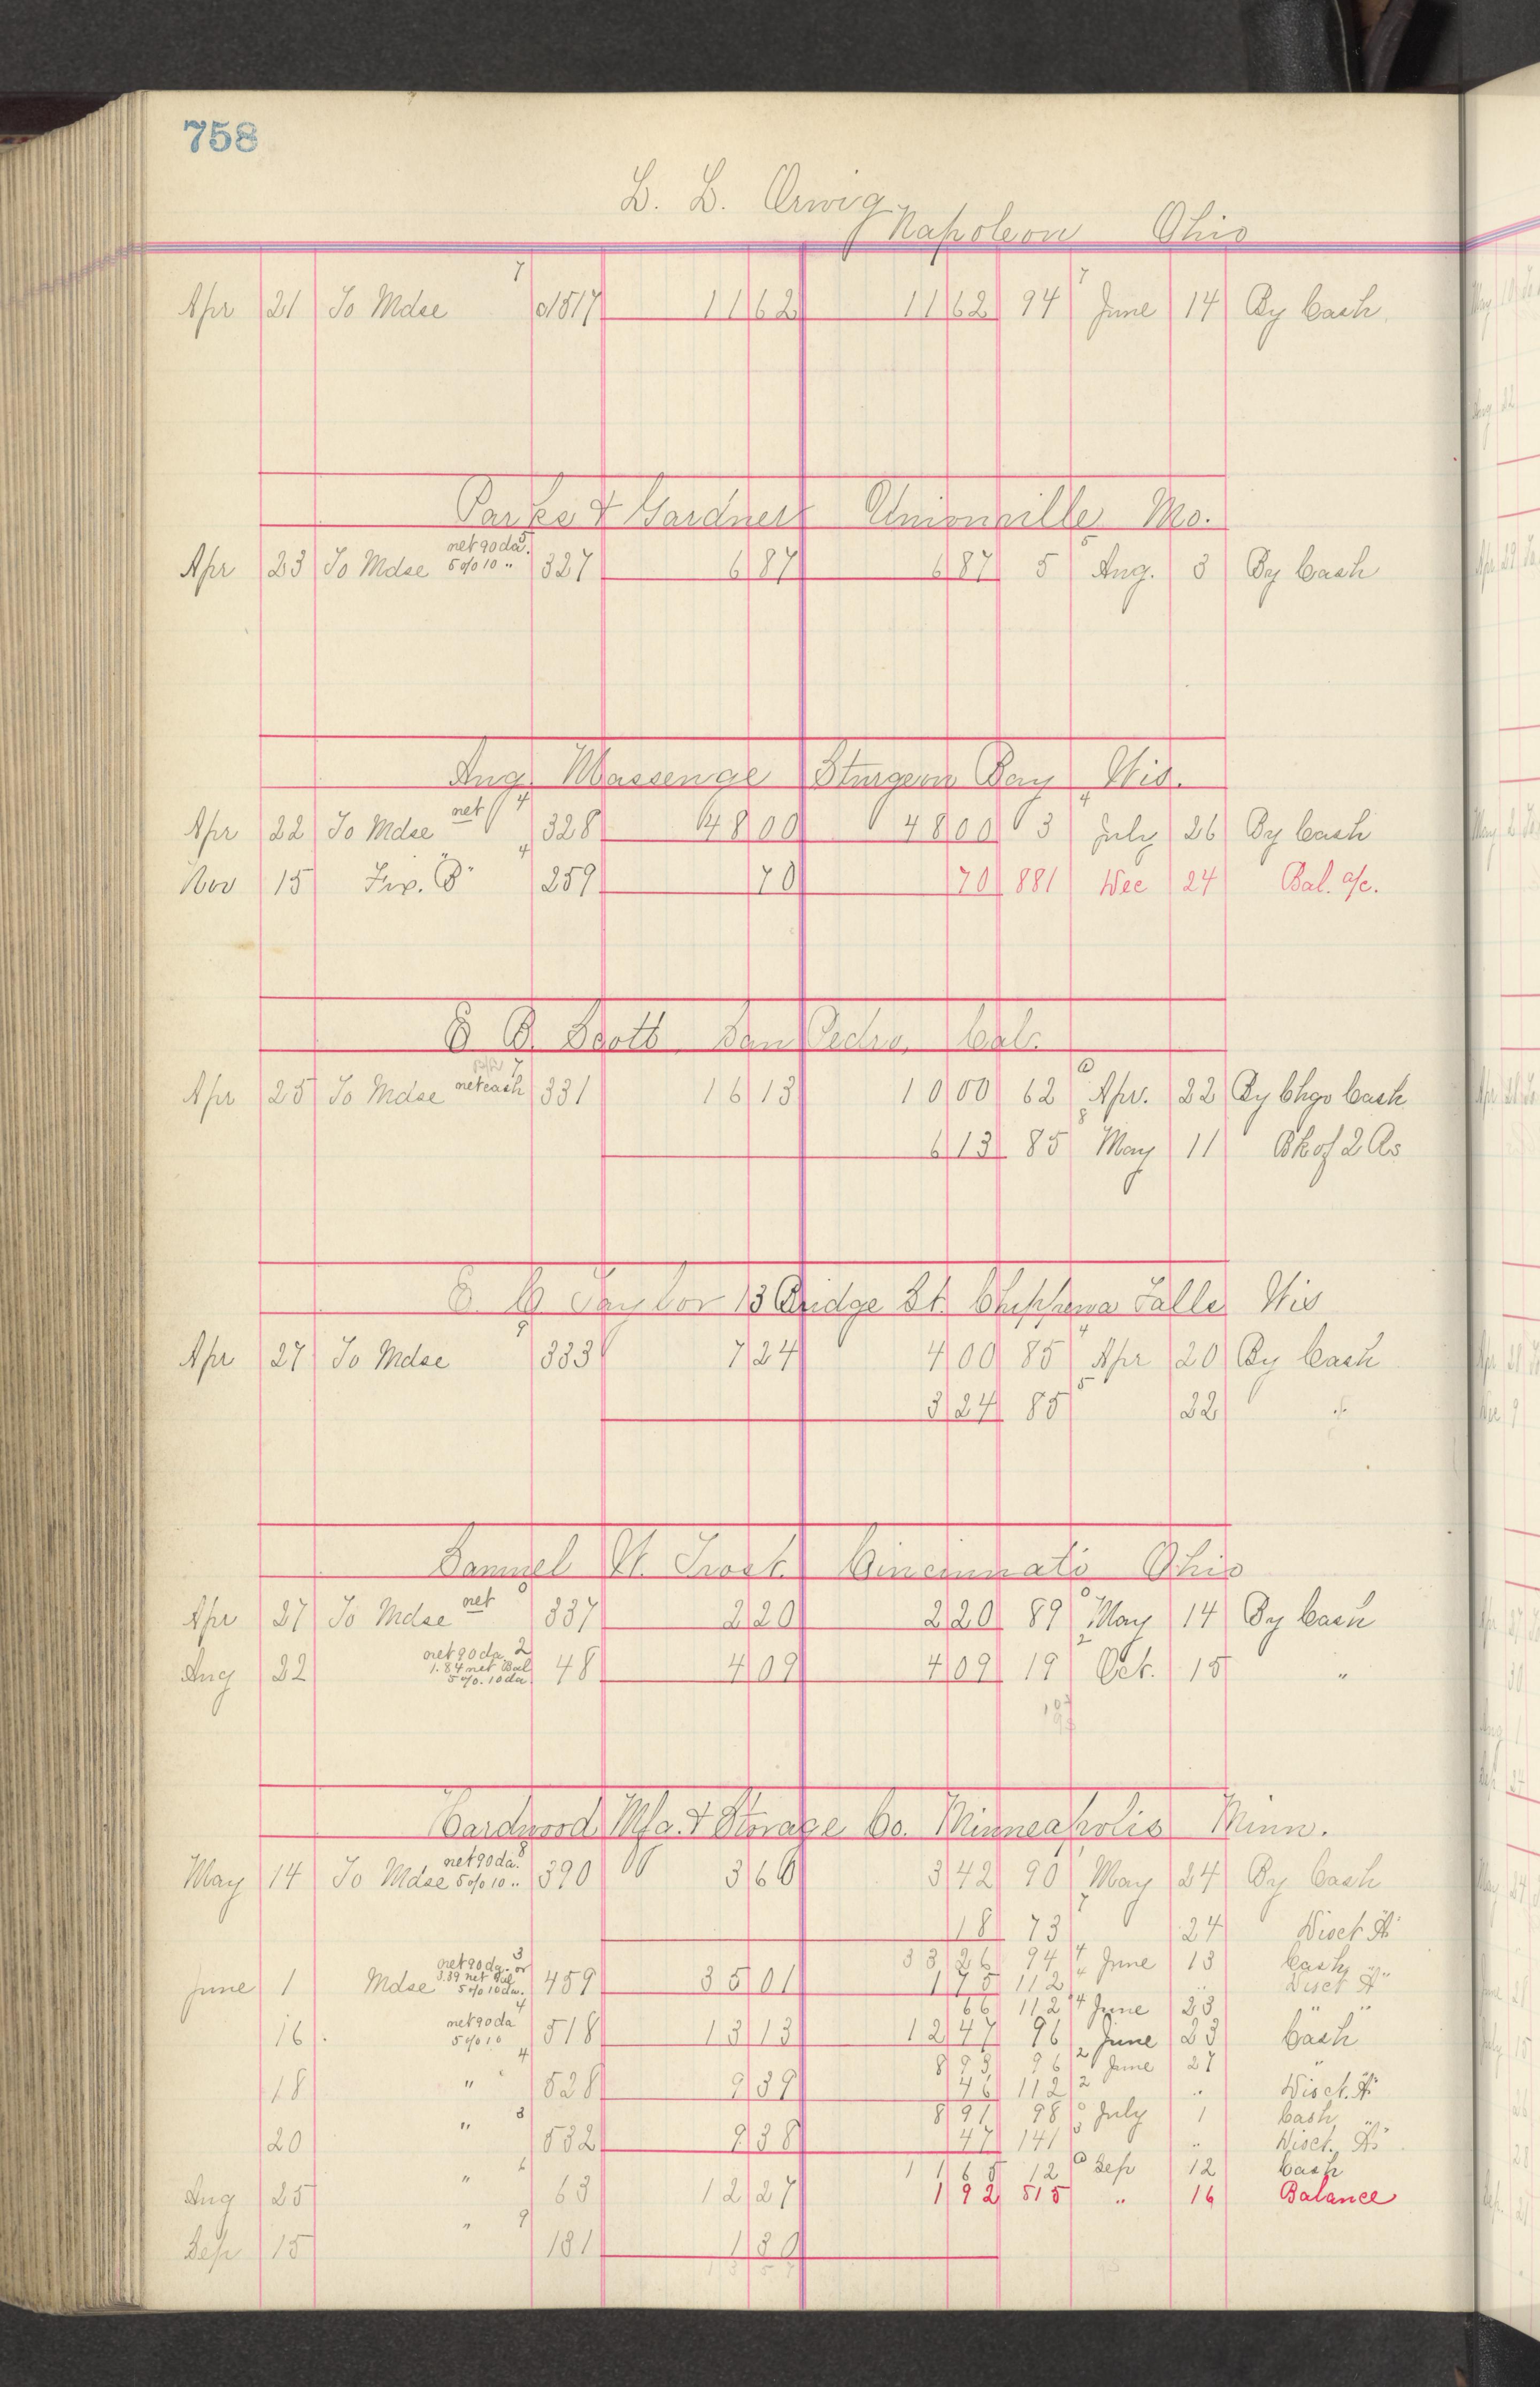 758
L. L. Orwig
Napoleon Ohio
7 7
Apr 21 To Mdse 0/517 11 62 11 62 94 June 14 By Cash
Parks & Gardner Unionville Mo.
net 90 da. 5 5
Apr 23 To Mdse 5% 10 " 327 6 87 6 87 5 Aug. 3 By Cash
Aug. Massenge Sturgeon Bay Wis.
net 4 4
Apr 22 To Mdse 328 48 00 48 00 3 July 26 By Cash
4
Nov 15 Frt. "B" 259 70 70 881 Dec 24 Bal. a/c.
E B. Scott San Pedro, Cal.
7
Apr 25 To Mdse net cash 331 16 13 10 00 62 Apr. 22 By Chgo Cash
8
6 13 85 May 11 Bk of 2 Rs
E. Taylor 13 Bridge St. Chippewa Falls Wis
9 4
Apr 27 To Mdse 333 7 24 4 00 85 Apr 20 By Cash
5
3 24 85 22 "
Samuel W. Trost. Cincinnati Ohio
net 0 0
Apr 27 To Mdse 337 2 20 2 20 89 May 14 By Cash
net 90 da 2 2
1.84 net Bal
Aug 22 5%. 10 da 48 4 09 4 09 19 Oct. 15 "
Hardwood Mfg. & Storage Co. Minneapolis Minn.
net 90 da. 8
May 14 To Mdse 5% 10 " 390 3 60 3 42 90 May 24 By Cash
7
18 73 24 Disct "A"
net 90 da. or 3
33 26 94 4 June 13 Cash
3.39 net Bal
June 1 Mdse 5% 10 da. 459 35 01 1 75 112 4 " Disct "A"
66 112 4 June 23 " "
net 90 da 4
16 5% 10 518 13 13 12 47 96 June 23 Cash
4
8 93 96 2 June 27 "
18 " 528 9 39 46 112 2 " Disct. "A"
8 91 98 0 July 1 Cash
" 8
20 532 9 38 47 141 3 " Disct. "A"
11 65 12 Sep 12 Cash
" 6
Aug 25 63 12 27 1 92 515 " 16 Balance
" 9
Sep 15 181 1 30